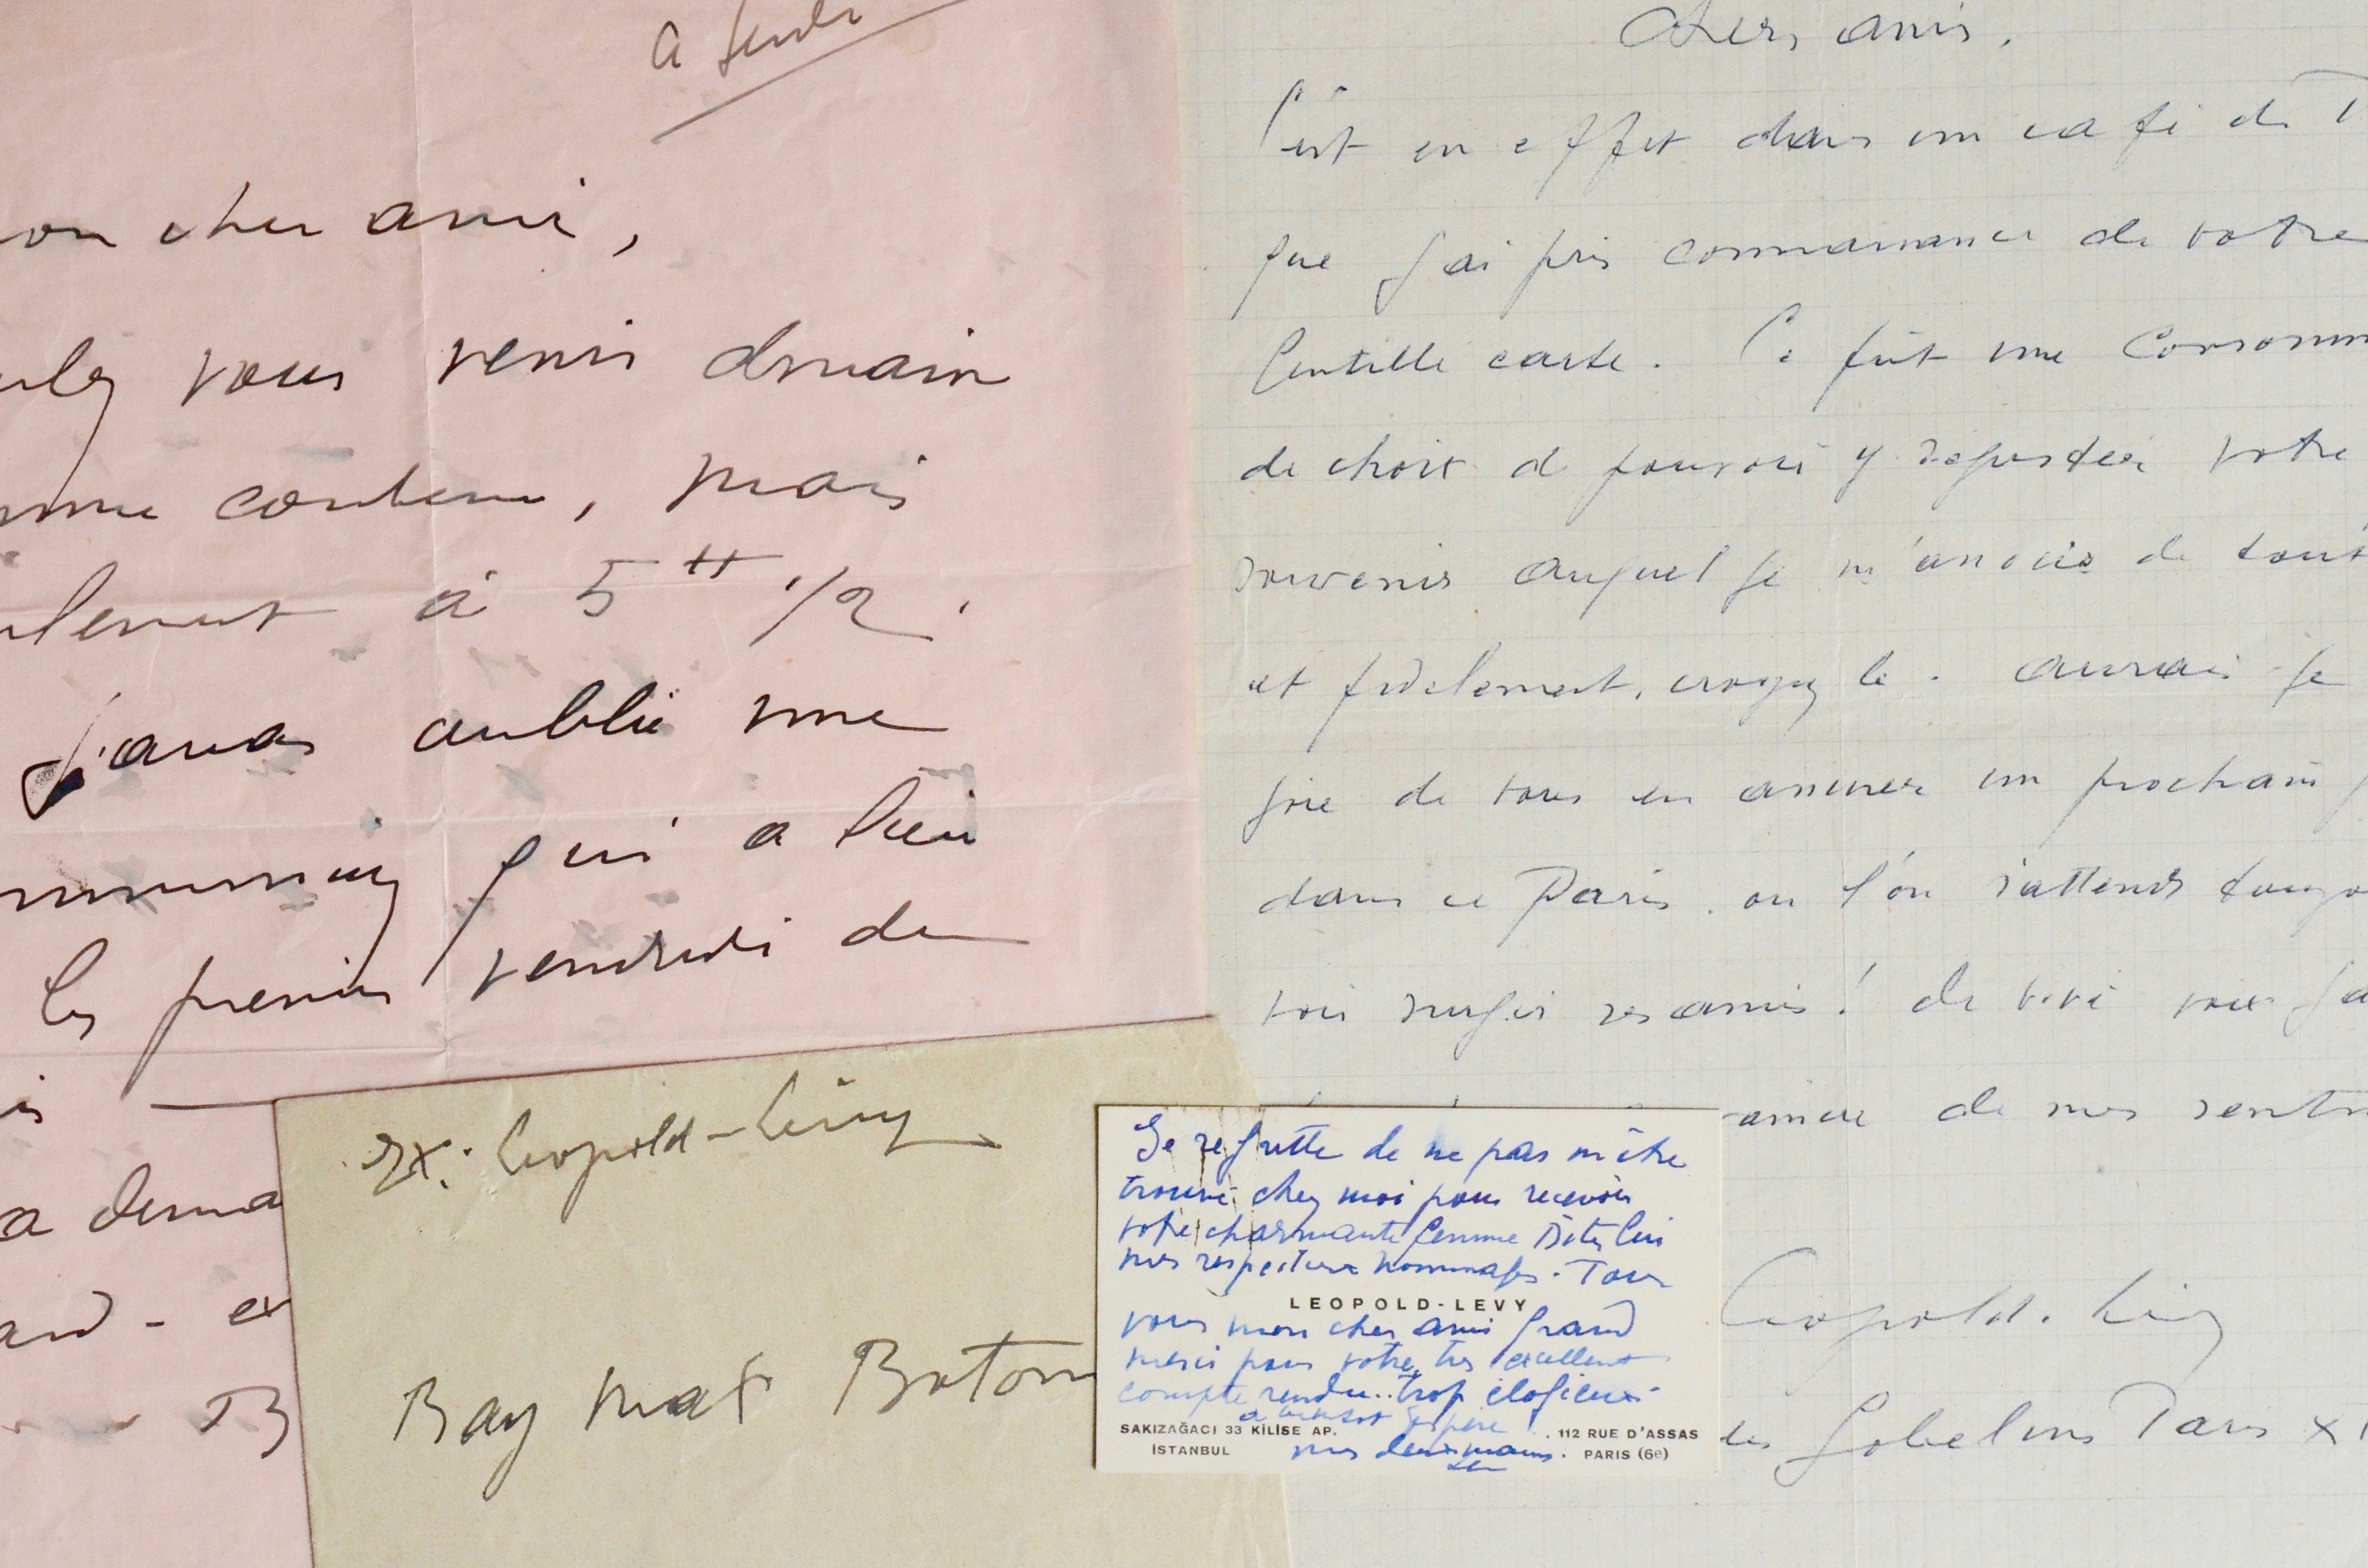 on cher ami,
ulez vous venir demain
mme convenu, mais
ulement à 5 H 1/2.
J'avais oublié une
qui a lieu
les premiers vendredi du
is
a dema
and - ex
B
Chers amis.
C'est en effet dans un café de P
que j'ai pris connaissance de votre
gentille carte. Ce fût une consomm
de choix de pouvoir y déguster votre
souvenir auquel je m'associe de tout
et fidèlement, croyez le. aurais-je
joie de vous en assurer un prochain j
dans ce Paris. où l'on s'attend toujo
voir surgir ses amis! de vive voix
de mes senti
Leopold. Lévy
des Gobelins Paris XI
Ex: Leopold-Lévy
Bay Max Boton
Je regrette de ne pas m'être
trouvé chez moi pour recevoir
votre charmante femme Dites lui
mes respectueux hommages. Pour
LEOPOLD-LEVY
vous mon cher ami grand
merci pour votre très excellent
compte rendu.. trop élogieux.
a bientôt j'espère
SAKIZAĞACI 33 KİLİSE AP.
İSTANBUL
112 RUE D'ASSAS
PARIS (6e)
mes deux mains.